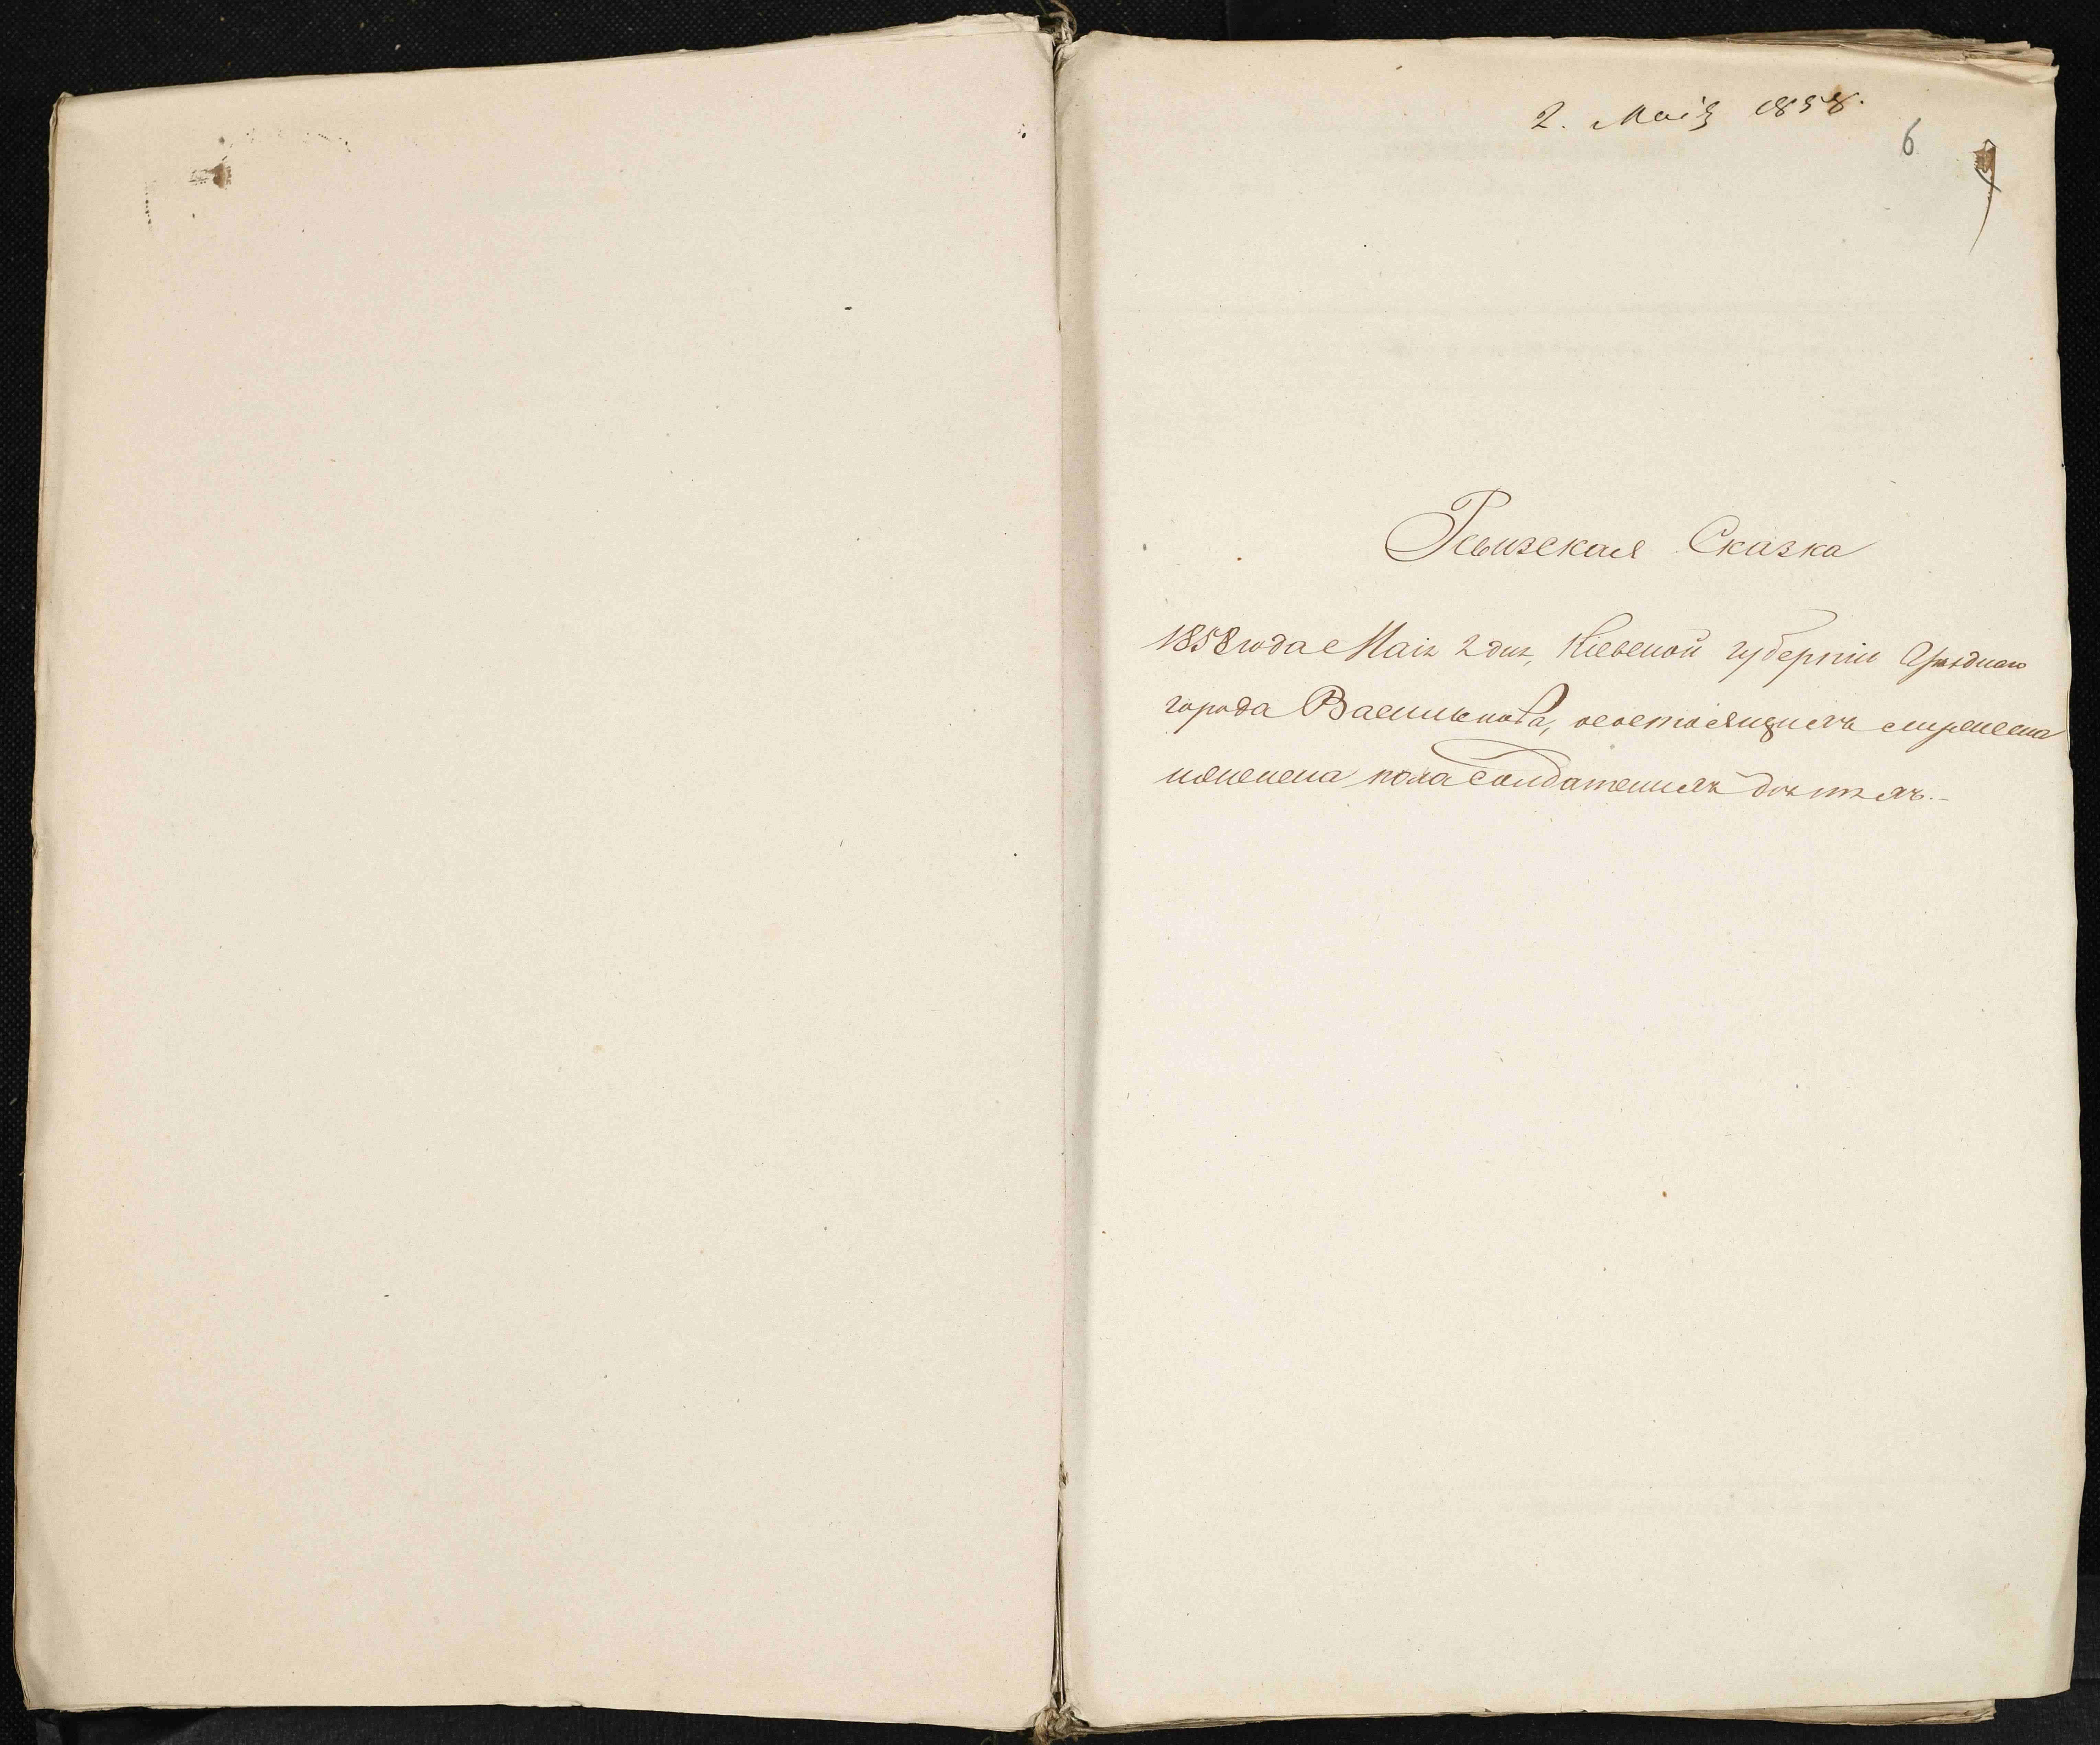 2. Маія 1858.
6
Ревизская Сказка
1858 года Маія 2 дня, Кіевской губерніи Уѣзднаго
города Василькова, о состоящихъ
женска пола солдатскихъ дѣтяхъ.